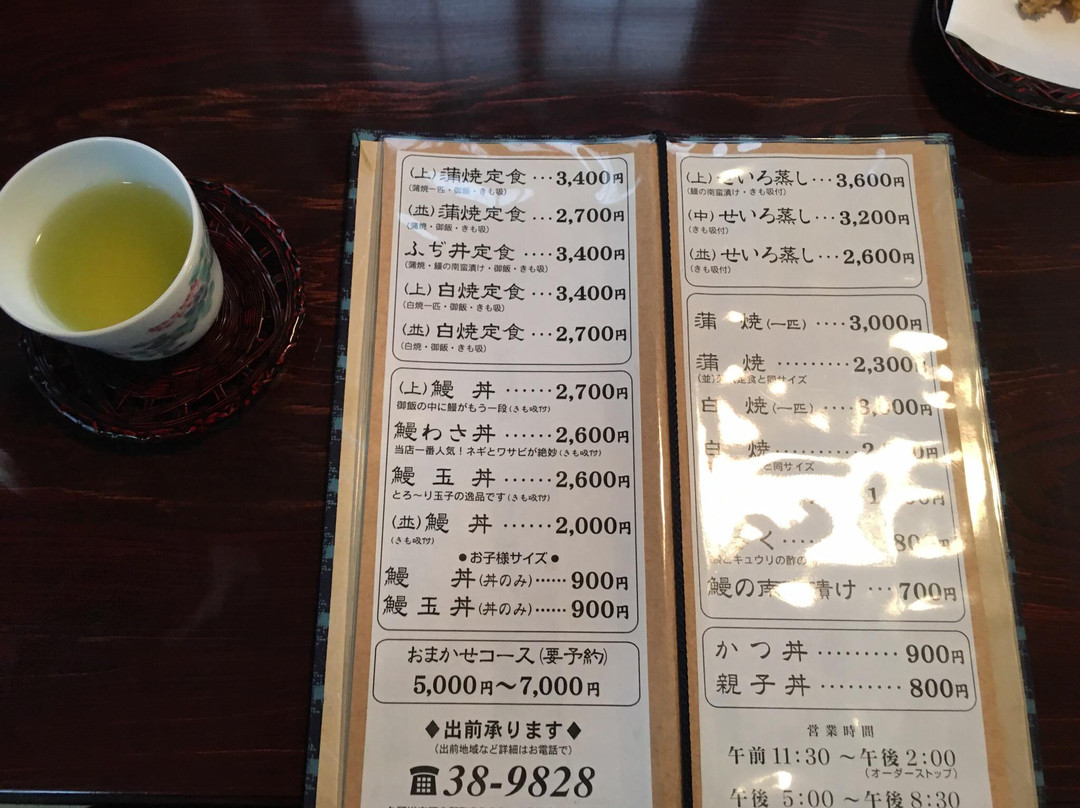 (上)蒲焼定食…3,400円
(蒲焼一匹・御飯・きも吸)
(並)蒲焼定食…2,700円
(蒲焼・御飯・きも吸)
ふぢ井定食…3,400円
(蒲焼・鰻の南蛮漬け・御飯・きも吸)
(上)白焼定食…3,400円
(白焼一匹・御飯・きも吸)
(並)白焼定食…2,700円
(白焼・御飯・きも吸)
(上)鰻丼……2,700円
御飯の中に鰻がもう一段(きも吸付)
鰻わさ丼……2,600円
当店一番人気!ネギとワサビが絶妙(きも吸付)
鰻玉丼……2,600円
とろ〜り玉子の逸品です(きも吸付)
(並)鰻丼……2,000円
(きも吸付)
●お子様サイズ●
鰻丼(丼のみ)……900円
鰻玉丼(丼のみ)……900円
おまかせコース(要予約)
5,000円〜7,000円
◆出前承ります◆
(出前地域など詳細はお電話で)
☎38-9828
(上)せいろ蒸し…3,600円
(鰻の南蛮漬け・きも吸付)
(中)せいろ蒸し…3,200円
(きも吸付)
(並)せいろ蒸し…2,600円
(きも吸付)
蒲焼(一匹)…3,000円
蒲焼………2,300円
(並)定食と同サイズ
白焼(一匹)…円
白焼………円
と同サイズ
く…
キュウリの酢の
鰻の南漬け…700円
かつ丼………900円
親子丼………800円
営業時間
午前11:30〜午後2:00
(オーダーストップ)
午後5:00〜午後8:30